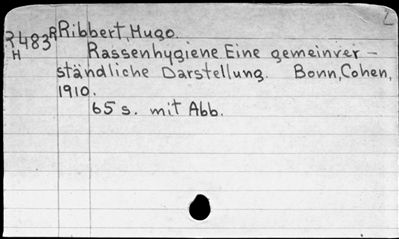 R483R Ribbert, Hugo.
H Rassenhygiene. Eine gemeinver-
ständliche Darstellung. Bonn, Cohen,
1910.
65 s. mit Abb.